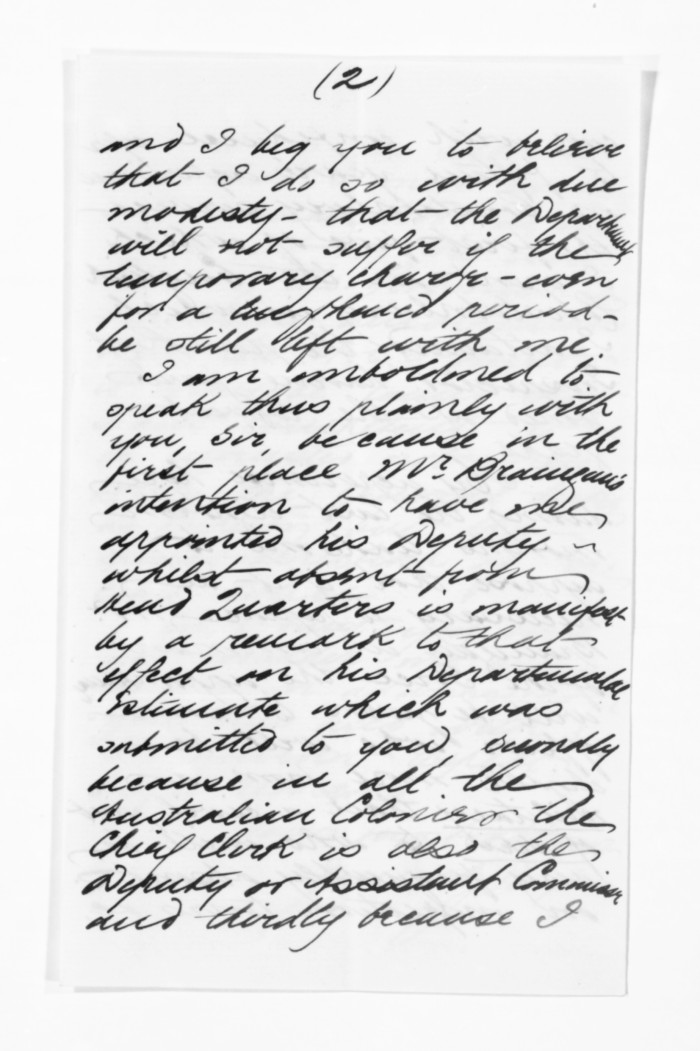 (2)
and I beg you to believe
that I do so with due
modesty - that the Department
will not suffer if the
temporary charge - even
for a lengthened period -
be still left with me.
I am emboldened to
speak thus plainly with
you, Sir, because in the
first place Mr.
intention to have me
appointed his Deputy -
whilst absent from
Head Quarters is manifest
by a remark to that
effect on his Departmental
Estimate which was
submitted to you, secondly
because in all the
Australian Colonies the
Chief Clerk is also the
Deputy or Assistant Commissr
and thirdly because I